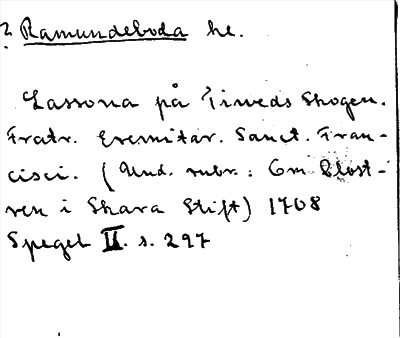 ? Ramundeboda hd.
Lassona på Tiweds Skogen.
Fratr. Eremitar. Sanct. Fran-
cisci. (Und. rubr.: Om Klost-
ren i Skara Stift) 1708
Spegel II. s. 297